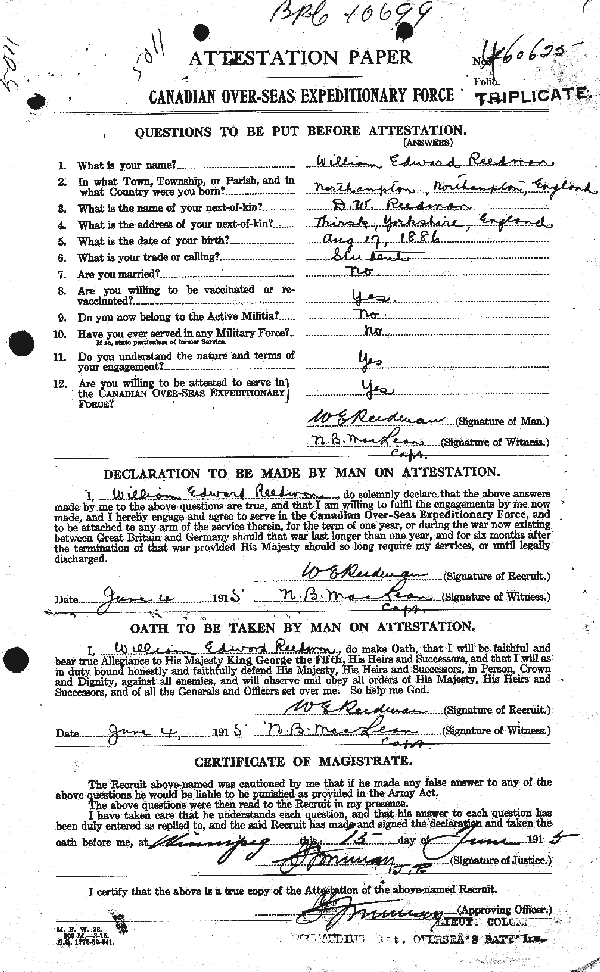 BRC 10699
5011
5011
ATTESTATION PAPER
No. 460625
Folio.
CANADIAN OVER-SEAS EXPEDITIONARY FORCE
TRIPLICATE
QUESTIONS TO BE PUT BEFORE ATTESTATION.
(ANSWERS)
1. What is your name? William Edward Reedman
2. In what Town, Township, or Parish, and in
what Country were you born? Northampton, Northampton, England
3. What is the name of your next-of-kin? D. W. Reedman
4. What is the address of your next-of-kin? Thirsk, Yorkshire, England
5. What is the date of your birth? Aug 17, 1886
6. What is your trade or calling? Student
7. Are you married? No
8. Are you willing to be vaccinated or re-
vaccinated? Yes.
9. Do you now belong to the Active Militia? No
10. Have you ever served in any Military Force? No
If so, state particulars of former Service.
11. Do you understand the nature and terms of
your engagement? Yes
12. Are you willing to be attested to serve in
the CANADIAN OVER-SEAS EXPEDITIONARY
FORCE? Yes
W E Reedman (Signature of Man.)
N. B. MacLean (Signature of Witness.)
Capt.
DECLARATION TO BE MADE BY MAN ON ATTESTATION.
I, William Edward Reedman, do solemnly declare that the above answers
made by me to the above questions are true, and that I am willing to fulfil the engagements by me now
made, and I hereby engage and agree to serve in the Canadian Over-Seas Expeditionary Force, and
to be attached to any arm of the service therein, for the term of one year, or during the war now existing
between Great Britain and Germany should that war last longer than one year, and for six months after
the termination of that war provided His Majesty should so long require my services, or until legally
discharged.
W E Reedman (Signature of Recruit.)
Date June 4 1915 N. B. MacLean (Signature of Witness.)
Capt.
OATH TO BE TAKEN BY MAN ON ATTESTATION.
I, William Edward Reedman, do make Oath, that I will be faithful and
bear true Allegiance to His Majesty King George the Fifth, His Heirs and Successors, and that I will as
in duty bound honestly and faithfully defend His Majesty, His Heirs and Successors, in Person, Crown
and Dignity, against all enemies, and will observe and obey all orders of His Majesty, His Heirs and
Successors, and of all the Generals and Officers set over me. So help me God.
W E Reedman (Signature of Recruit.)
Date June 4, 1915 N. B. MacLean (Signature of Witness.)
Capt
CERTIFICATE OF MAGISTRATE.
The Recruit above-named was cautioned by me that if he made any false answer to any of the
above questions he would be liable to be punished as provided in the Army Act.
The above questions were then read to the Recruit in my presence.
I have taken care that he understands each question, and that his answer to each question has
been duly entered as replied to, and the said Recruit has made and signed the declaration and taken the
oath before me, at Winnipeg this 15 day of June 1915
(Signature of Justice.)
J.P.
I certify that the above is a true copy of the Attestation of the above-named Recruit.
(Approving Officer.)
LIEUT. COLONEL
OVERSEA'S BATT'
M. F. W. 23.